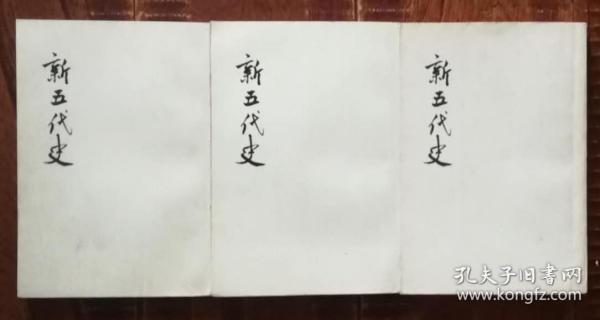 新五代史
新五代史
新五代史
孔夫子旧書网
www.kongfz.com